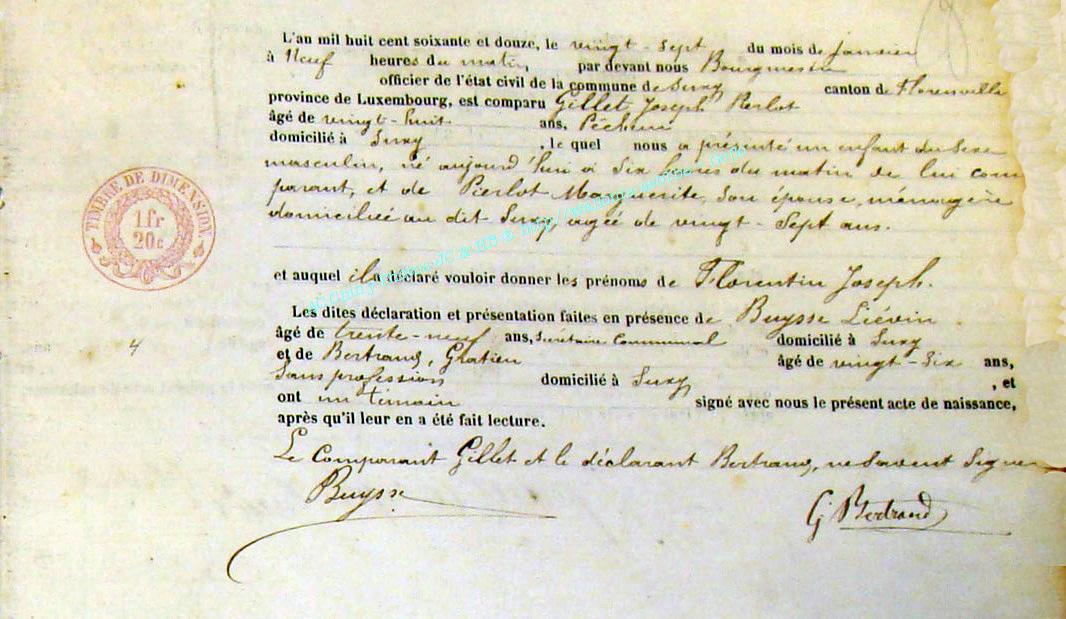 L'an mil huit cent soixante et douze, le vingt-sept du mois de Janvier
à Neuf heures du matin, par devant nous Bourgmestre
officier de l'état civil de la commune de Suxy canton de Florenville
province de Luxembourg, est comparu Gillet, Joseph
âgé de vingt-huit ans,
domicilié à Suxy, le quel nous a présenté un enfant du Sexe
masculin, né aujourd'hui à Six heures du matin de lui com
parant, et de Pierlot Marguerite, Son épouse, ménagère
domiciliée au dit Suxy, agée de vingt-Sept ans.
TIMBRE DE DIMENSION
1 fr
20 c
et auquel il a déclaré vouloir donner les prénoms de Florentin Joseph.
Les dites déclaration et présentation faites en présence de Buysse Liévin
âgé de trente-neuf ans, Secrétaire Communal domicilié à Suxy
4
et de Bertrand, Gratien âgé de vingt-Six ans,
Sans profession domicilié à Suxy, et
ont un témoin signé avec nous le présent acte de naissance,
après qu'il leur en a été fait lecture.
Le Comparant Gillet et le déclarant Bertrand, ne Savent Signer
Buysse
G Bertrand